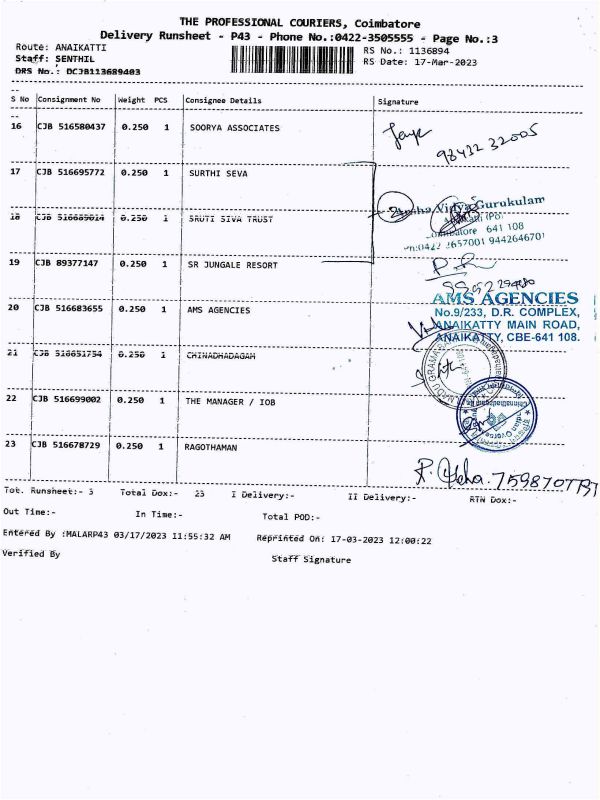 THE PROFESSIONAL COURIERS, Coimbatore
Delivery Runsheet - P43 - Phone No.:0422-3505555 - Page No.:3
Route: ANAIKATTI
RS No.: 1136894
Staff: SENTHIL
RS Date: 17-Mar-2023
DRS No.: DCJB113689403
S No Consignment No Weight PCS Consignee Details Signature
16 CJB 516580437 0.250 1 SOORYA ASSOCIATES
98432 32005
17 CJB 516695772 0.250 1 SURTHI SEVA
Vidya Gurukulam
18 CJB 516689014 0.250 1 SRUTI SIVA TRUST
641 108
2657001 9442646701
19 CJB 89377147 0.250 1 SR JUNGALE RESORT
20 CJB 516683655 0.250 1 AMS AGENCIES
AMS AGENCIES
No.9/233, D.R. COMPLEX,
ANAIKATTY MAIN ROAD,
ANAIKATTY, CBE-641 108.
21 CJB 516651754 0.250 1 CHINADHADAGAM
22 CJB 516699002 0.250 1 THE MANAGER / IOB
23 CJB 516678729 0.250 1 RAGOTHAMAN
Tot. Runsheet:- 3 Total Dox:- 23 I Delivery:- II Delivery:- RTN Dox:-
Out Time:- In Time:- Total POD:-
Entered By :MALARP43 03/17/2023 11:55:32 AM Reprinted On: 17-03-2023 12:00:22
Verified By Staff Signature